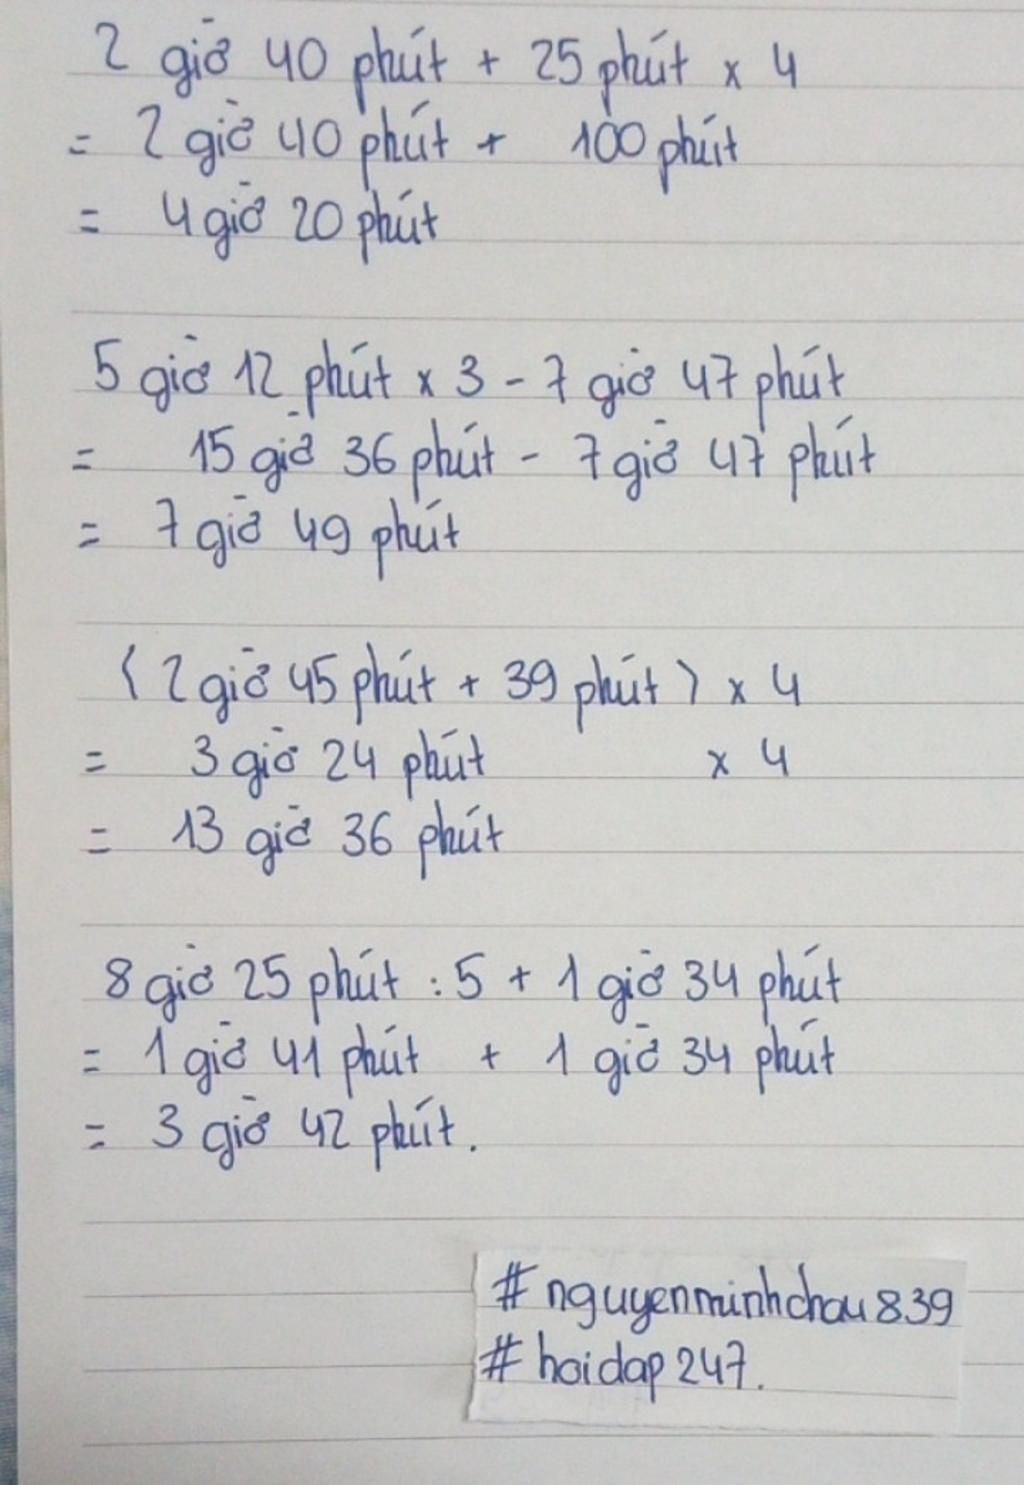 2 giờ 40 phút + 25 phút x 4
= 2 giờ 40 phút + 100 phút
= 4 giờ 20 phút
5 giờ 12 phút x 3 - 7 giờ 47 phút
= 15 giờ 36 phút - 7 giờ 47 phút
= 7 giờ 49 phút
( 2 giờ 45 phút + 39 phút ) x 4
= 3 giờ 24 phút x 4
= 13 giờ 36 phút
8 giờ 25 phút : 5 + 1 giờ 34 phút
= 1 giờ 41 phút + 1 giờ 34 phút
= 3 giờ 42 phút.
# nguyenminhchau839
# hoidap247.